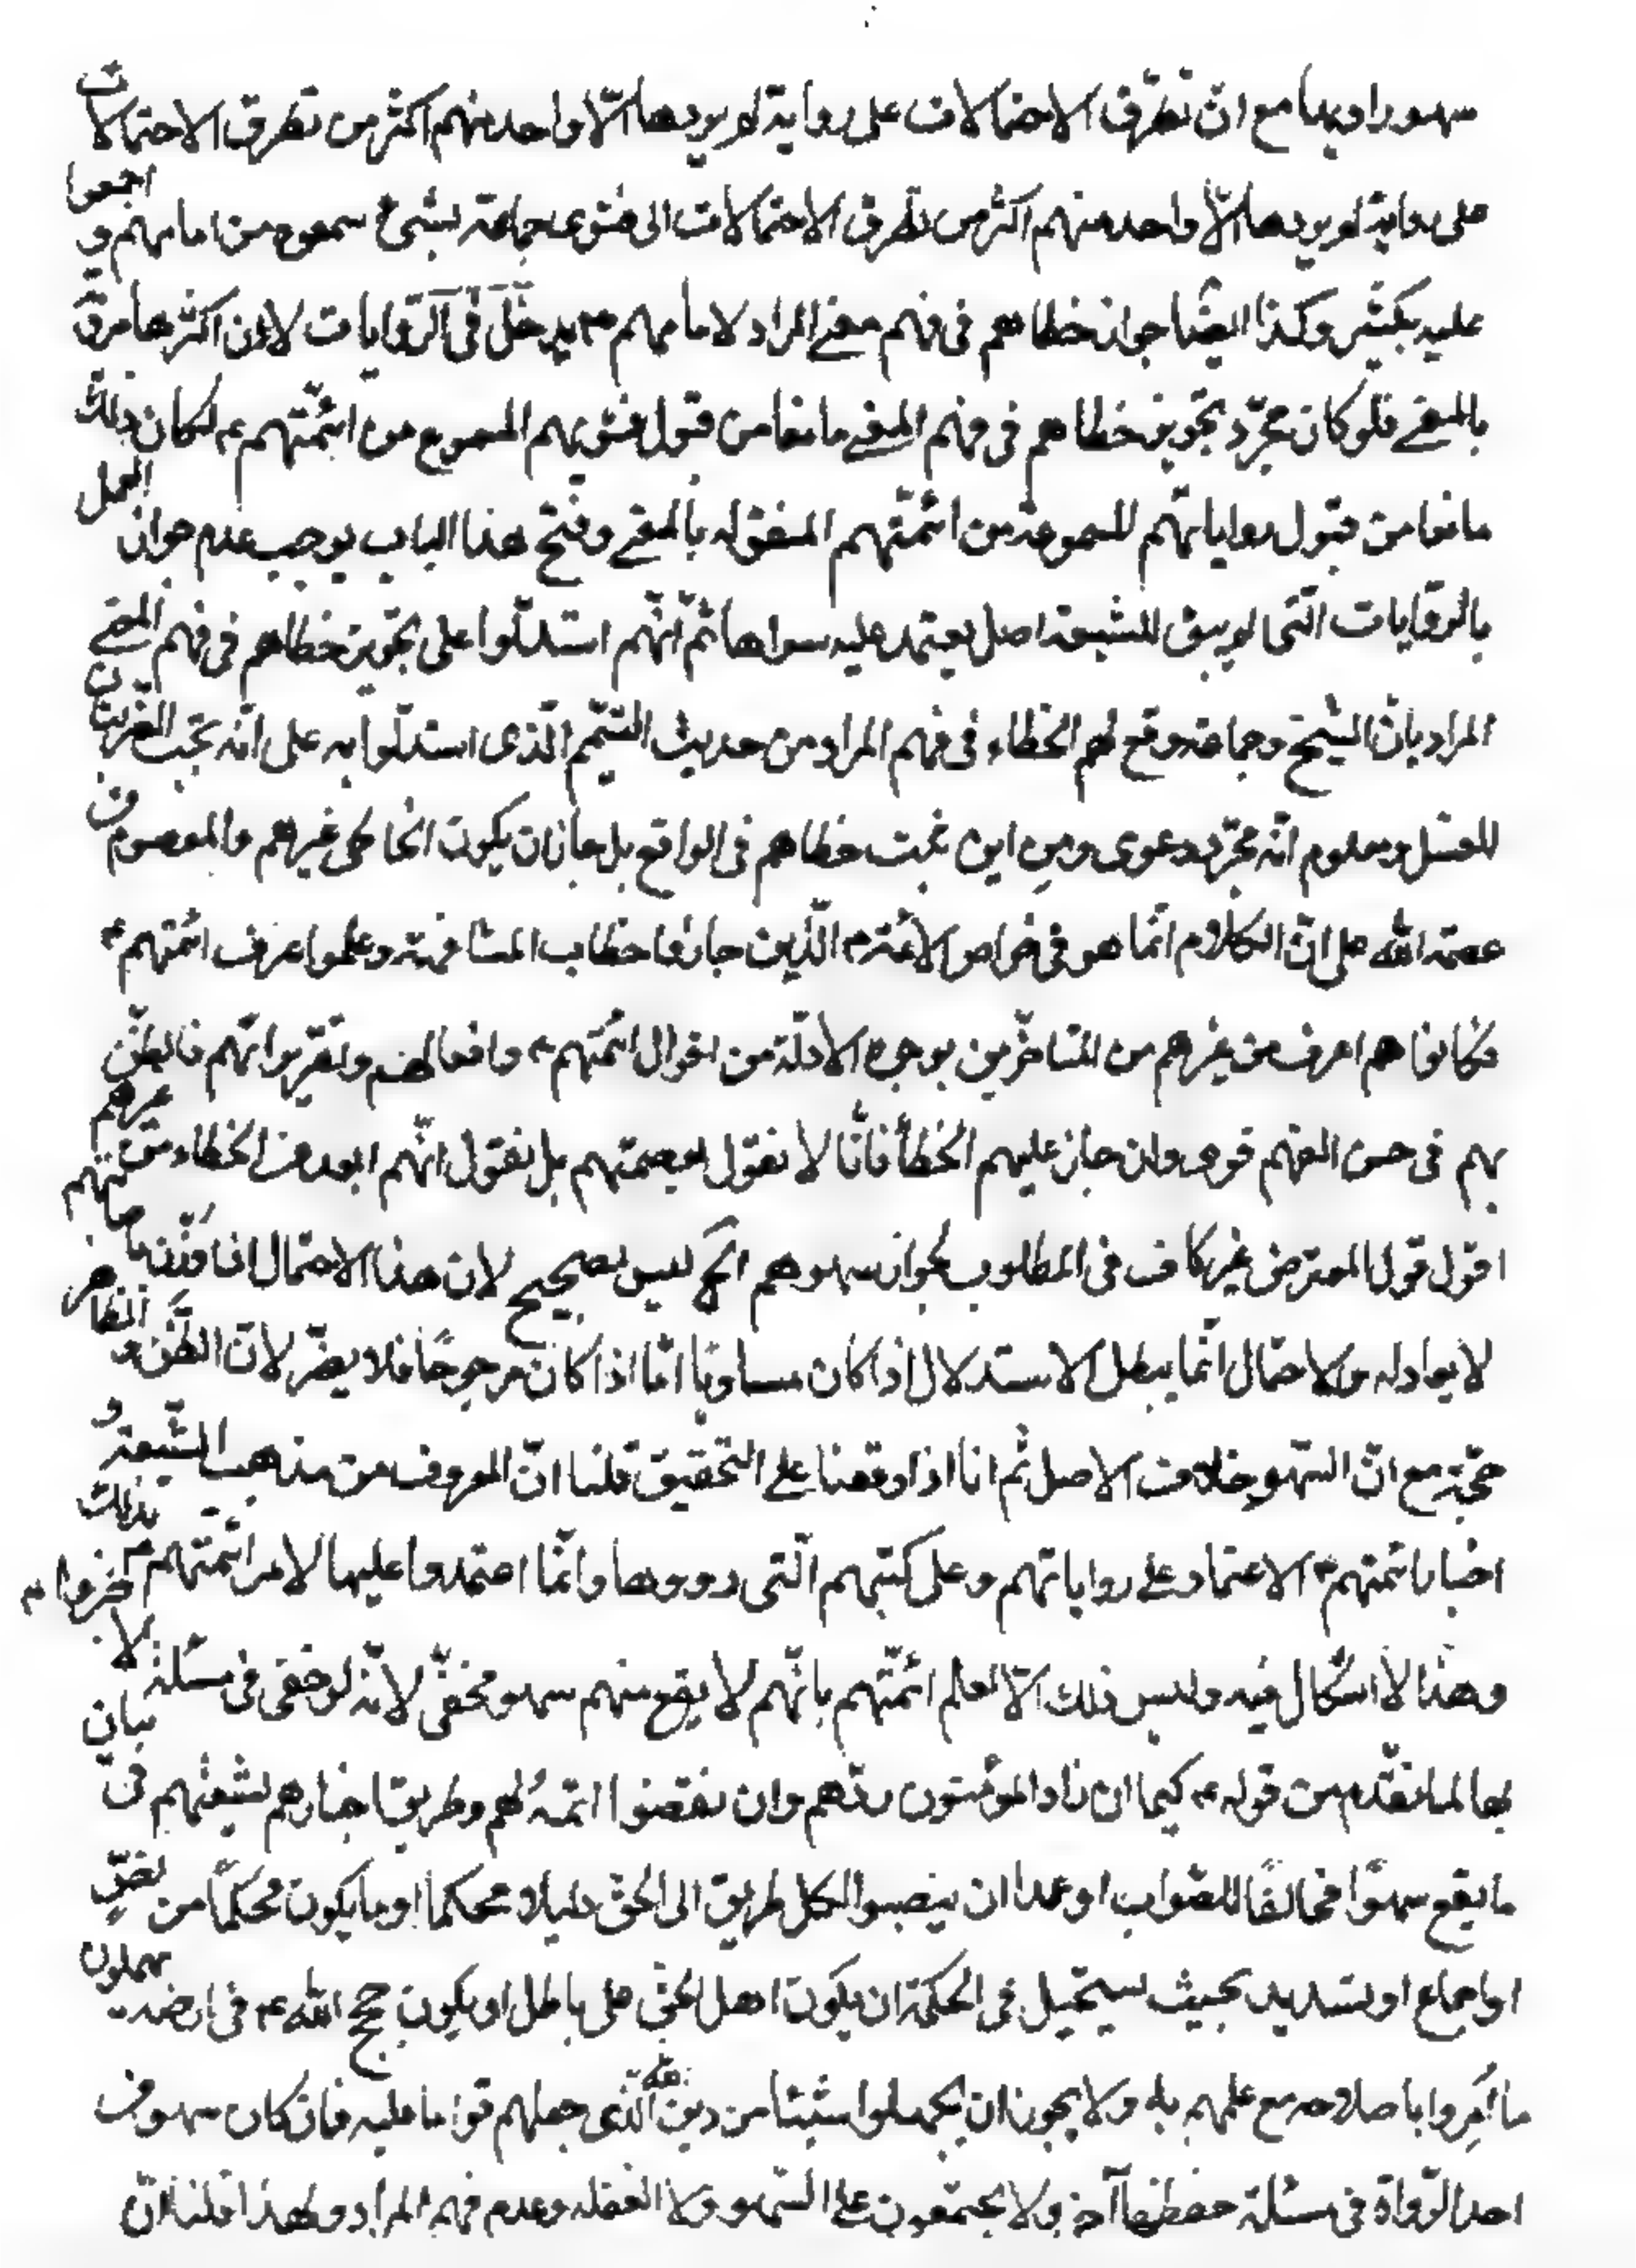 سهو راويها مع ان تطرّق الاحتمالات على رواية لم يروها الّا واحد منهم اكثر من تطرق الاحتمالات
على رواية لم يروها الّا واحد منهم اكثر من تطرق الاحتمالات الى فتوى جماعة بشئ سمعوه من امامهم و اجمعوا
عليه بكثير وكذا ايضًا جواز خطاهم فى فهم معنى المراد لامامهم ع يدخل فى الرّوايات لان اكثرها مرويّة
بالمعنى فلو كان مجرّد تجويز خطاهم فى فهم المعنى مانعا من قبول فتويهم المسموع من ائمّتهم ع لكان ذلك
مانعا من قبول رواياتهم المسموعة من ائمّتهم المنقوله بالمعنى وفتح هذا الباب يوجب عدم جواز العمل
بالرّوايات الّتى لم يبق للشيعة اصل يعتمد عليه سواها ثمّ انّهم استدلّوا على تجويز خطاهم فى فهم المعنى
المراد بانّ الشيخ وجماعة وقع لهم الخطاء فى فهم المراد من حديث التيمّم الّذى استدلّوا به على انّه تجب الضّربتان
للغسل ومعلوم انّه مجرّد دعوى ومن اين ثبت خطاهم فى الواقع بل جاز ان يكون الخاطى غيرهم والمعصوم من
عصمه الله على انّ الكلام انّما هو فى خواص الائمّة ع الّذين حازوا خطاب المشافهة وعلموا عرف ائمّتهم ع
فكانوا هم اعرف من غيرهم من المتاخّرين بوجوه الادلّة من اقوال ائمّتهم ع وافعالهم وتقريراتهم فالظنّ
بهم فى حسن الفهم قوى وان جاز عليهم الخطأ فانّا لا نقول بعصمتهم بل نقول انّهم ابعد من الخطاء من غيرهم
اقول قول المعترض غير كاف فى المطلوب لجواز سهوهم الخ ليس بصحيح لان هذا الاحتمال اذا
لا يعادله والاحتمال انّما يبطل الاستدلال اذا كان مساويًا امّا اذا كان مرجوحًا فلا يضرّ لانّ الظّنّ و الظاهر
حجّة مع انّ السّهو خلاف الاصل ثم انا اذا وقفنا على التحقيق قلنا انّ المعروف من مذهب الشّيعة و
اخبار ائمتهم ع الاعتماد على رواياتهم وعلى كتبهم الّتى رووها وانّما اعتمدوا عليها لامر ائمّتهم ع بذلك
وهذا لا اشكال فيه وليس ذلك الّا لعلم ائمّتهم بانّهم لا يقع منهم سهو مخفّى لانّه لو خفى فى مسئلة لا
بها لما تقدّم من قوله ع كيما ان زاد المؤمنون ردّهم وان نقصوا اتمّه لهم وطريق اخبارهم لشيعتهم فى بيان
ما يقع سهوًا مخالفًا للصّواب او عمدا ان ينصبوا لكل طريق الى الحق دليلا محكما او ما يكون محكمًا من نصّ
او اجماع او تسديد بحيث يستحيل فى الحكمة ان يكون اهل الحقّ على باطل او يكون حجج الله ع فى ارضه يهملون
ما اُمِروا باصلاحه مع علمهم به ولا يجوز ان يجهلوا شيئا من دين الله الّذى جعلهم قوّاما عليه فان كان سهو من
احد الرّواة فى مسئلة حفظها آخر ولا يجتمعون على السّهو ولا الغفله وعدم فهم المراد ولهذا قلنا انّ